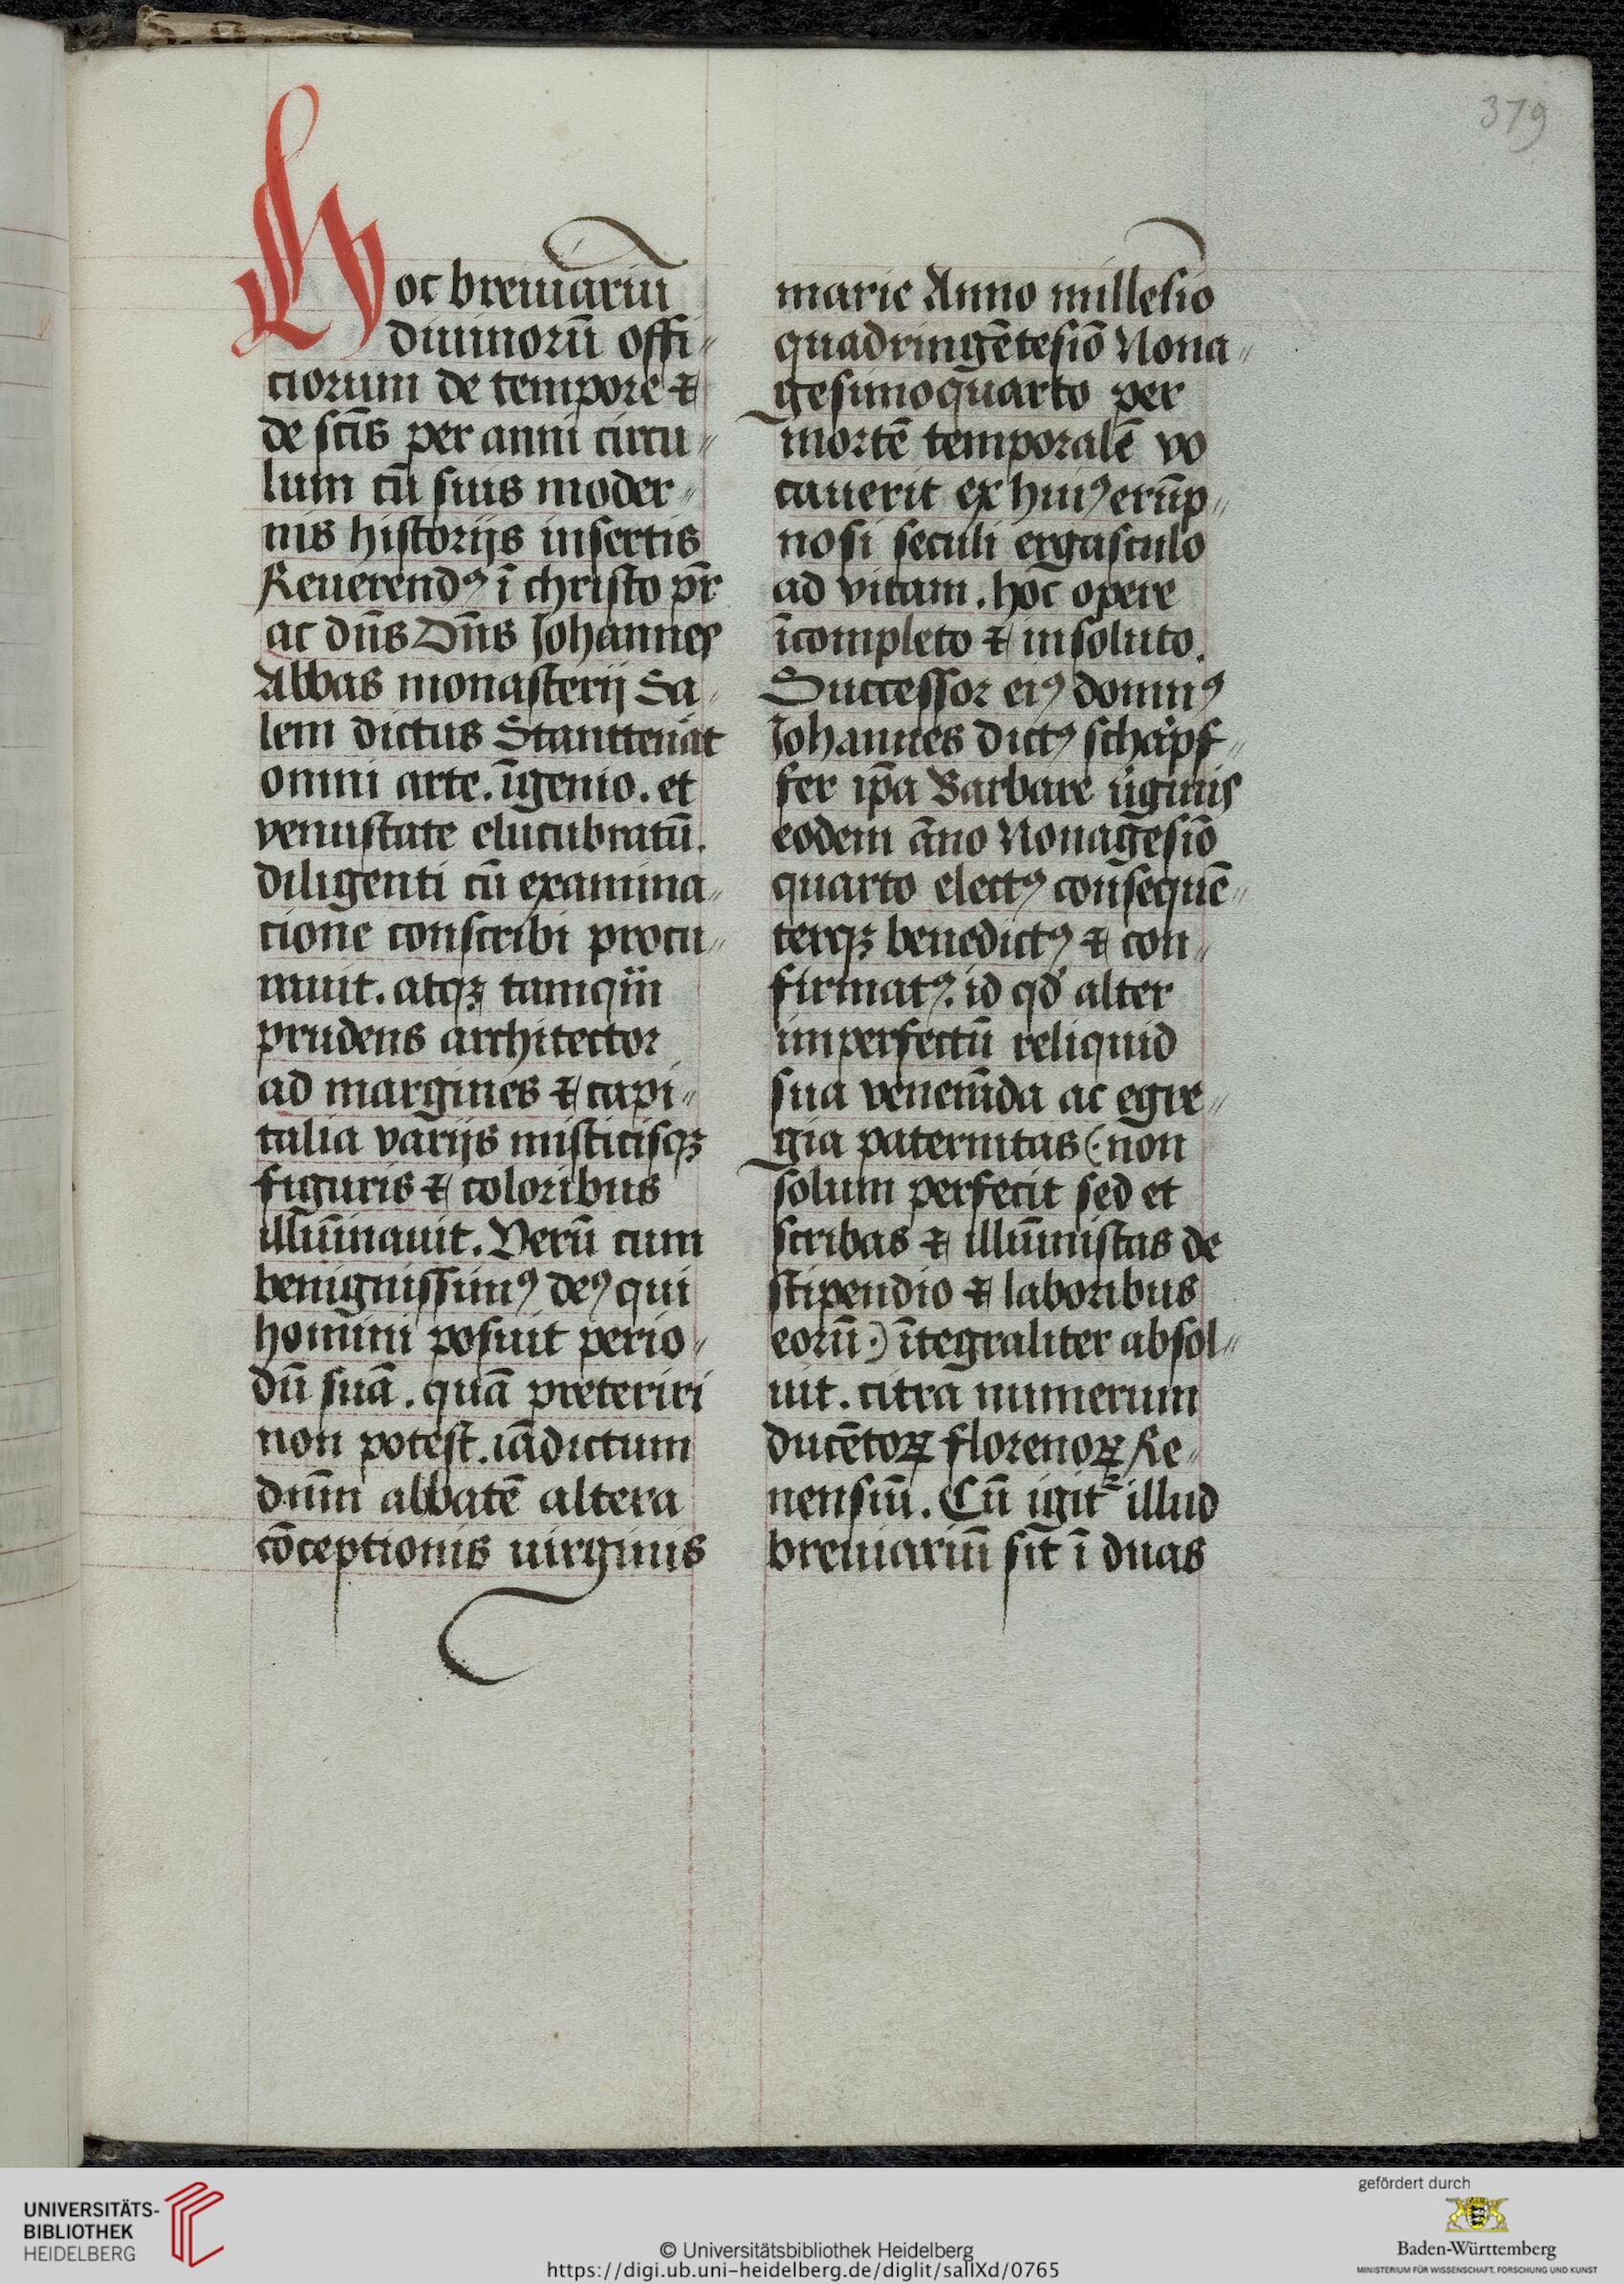 379
Hoc breuiariū
diuinorū offi⸗
ciorum de tempore ⁊
de sc̄tis per anni circu⸗
lum cū suis moder⸗
nis historijs insertis
Reuerendꝰ ī christo pr̄
ac dn̄s Dn̄s Johannes
Abbas monasterij Sa⸗
lem dictus Stanttenat
omni arte. īgenio. et
venustate elucubratū.
diligenti cū examina⸗
cione conscribi procu⸗
rauit. atqꝫ tamqm̄
prudens architector
ad margines ⁊ capi⸗
talia varijs misticisqꝫ
figuris ⁊ coloribus
illūinauit. Verū cum
benignissimꝰ deꝰ qui
homini posuit perio⸗
dū suā. quā preteriri
non potest. iādictum
dn̄m abbatē altera
cōceptionis uirginis
marie Anno millesio
quadringētesiō Nona⸗
gesimoquarto per
mortē temporalē vo
cauerit ex huiꝰ erūp⸗
nosi seculi ergasculo
ad vitam. hoc opere
īcompleto ⁊ insoluto.
Successor eiꝰ domnꝰ
Johannes dictꝰ schäpf⸗
fer ip̄a Barbare ūginis
eodem āno Nonagesiō
quarto electꝰ consequē⸗
terqꝫ benedictꝰ ⁊ con⸗
firmatꝰ. id qd̄ alter
imperfectū reliquid
sua venerāda ac egre⸗
gia paternitas (· non
solum perfecit sed et
scribas ⁊ illūinistas de
stipendio ⁊ laboribus
eorū ·) ītegraliter absol⸗
uit. citra numerum
ducētoꝝ florenoꝝ Re⸗
nensiū. Cū igit᷑ illud
breuiariū sit ī duas
UNIVERSITÄTS-
BIBLIOTHEK
HEIDELBERG
© Universitätsbibliothek Heidelberg
https://digi.ub.uni-heidelberg.de/diglit/salIXd/0765
gefördert durch
Baden-Württemberg
MINISTERIUM FÜR WISSENSCHAFT, FORSCHUNG UND KUNST